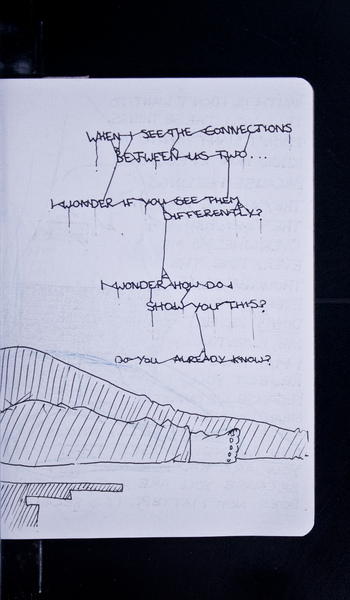 WHEN I SEE THE CONNECTIONS
BETWEEN US TWO...
I WONDER IF YOU SEE THEM
DIFFERENTLY?
I WONDER HOW DO I
SHOW YOU THIS?
DO YOU ALREADY KNOW?